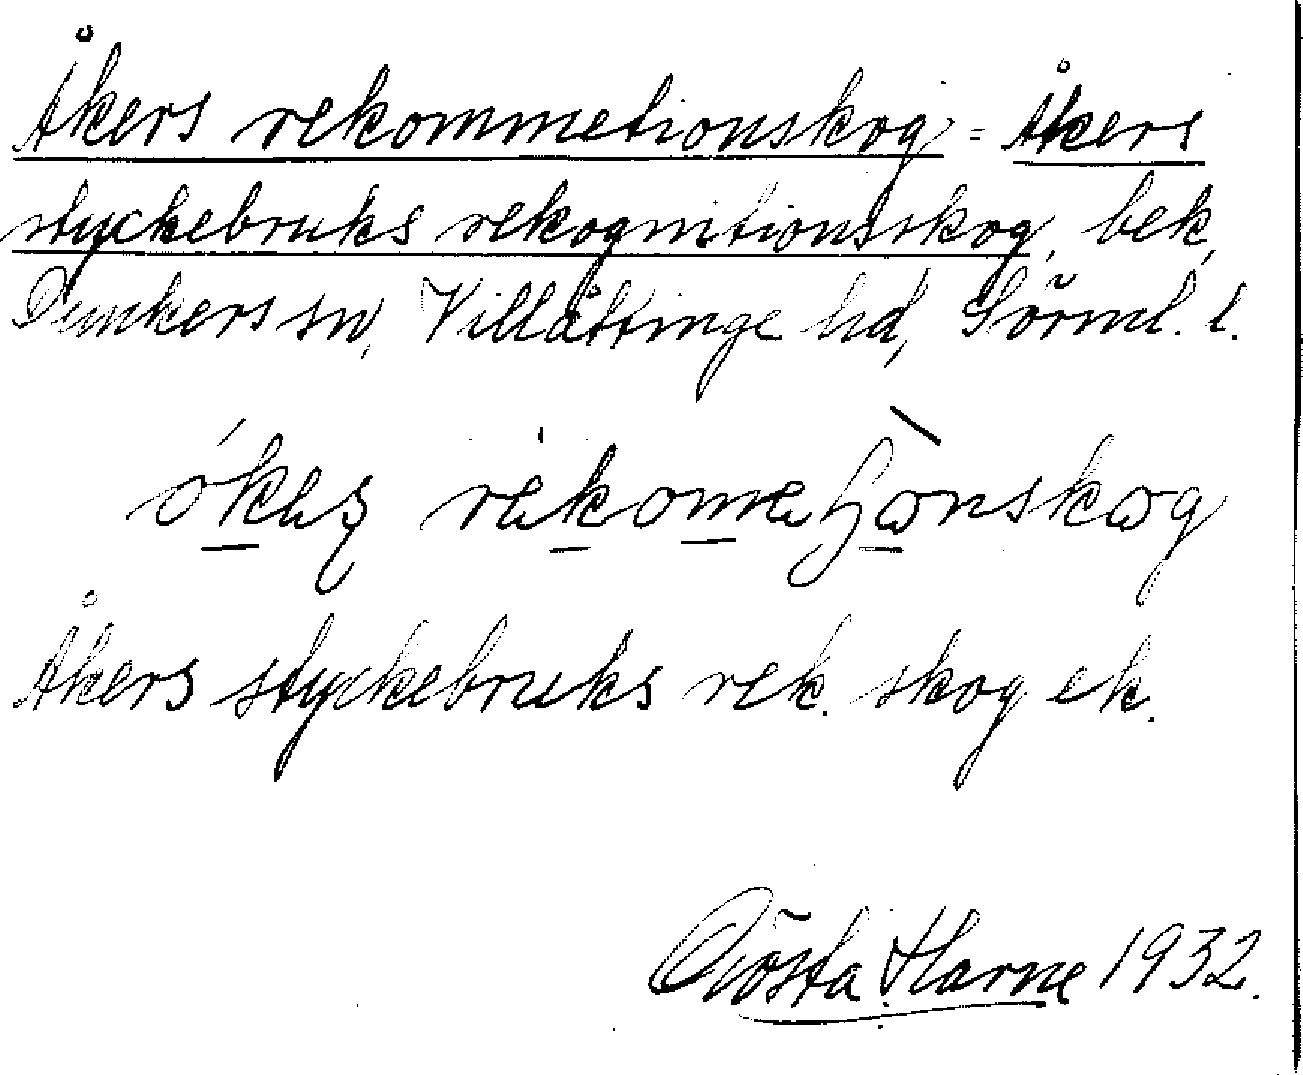 Åkers rekommetionskog = Åkers
styckebruks rekognitionsskog, bek,
Dunkers sn, Villåttinge hd, Sörml. l.
Åkers styckebruks rek. skog ek.
Gösta Harne 1932.